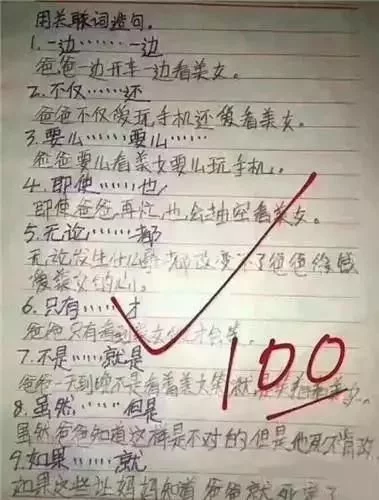 用关联词造句。
1.一边……一边
爸爸一边开车一边看美女。
2.不仅……还
爸爸不仅爱玩手机还爱看美女。
3.要么……要么……
爸爸要么看美女要么玩手机。
4.即使……也
即使爸爸再忙,也会抽空看美女。
5.无论……都
无论发生什么都改变不了爸爸
爱美女的心。
6.只有……才
爸爸只有看到美女才会笑
7.不是……就是
爸爸一天到晚不是看着美女笑就是
8.虽然……但是
虽然爸爸知道这样是不对的但是他死不肯改
9.如果……就
如果这些让妈妈知道爸爸就死定了
100